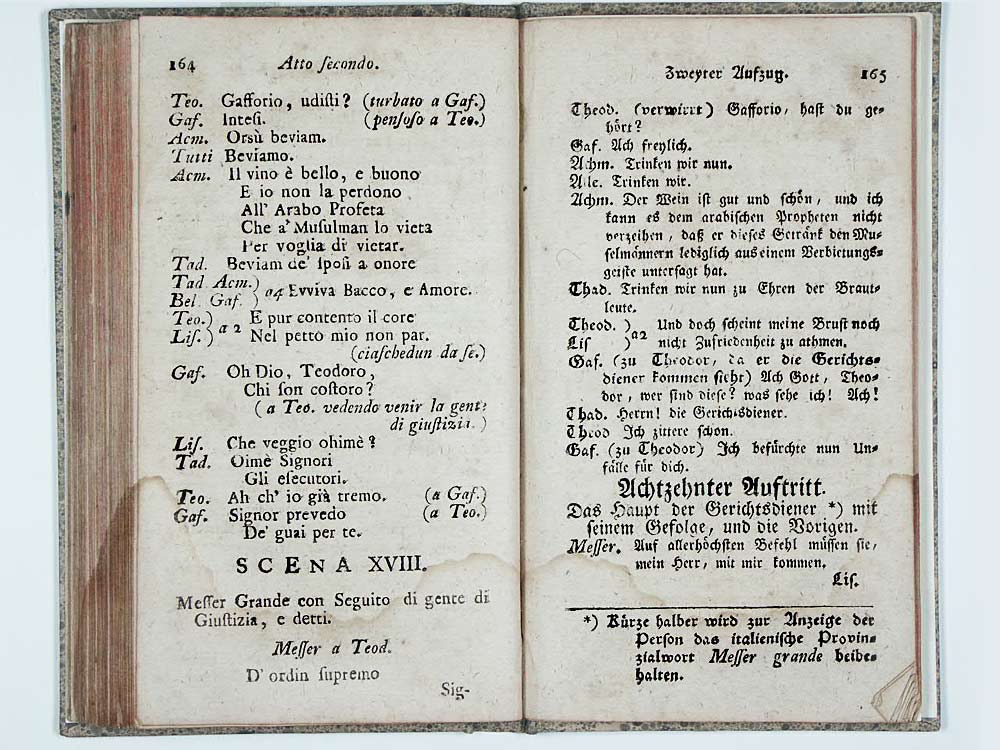 164 Atto ſecondo.
Teo. Gafforio, udiſti? (turbato a Gaf.)
Gaf. Inteſi. (penſoſo a Teo.)
Acm. Orsù beviam.
Tutti Beviamo.
Acm. Il vino è bello, e buono
E io non la perdono
All' Arabo Profeta
Che a' Muſulman lo vieta
Per voglia di vietar.
Tad. Beviam de' ſpoſi a onore
Tad Acm.)
Bel. Gaf. ) a4 Evviva Bacco, e Amore.
Teo.) E pur contento il core
Liſ. ) a 2 Nel petto mio non par.
(ciaſchedun da ſe.)
Gaf. Oh Dio, Teodoro,
Chi ſon coſtoro?
( a Teo. vedendo venir la gente
di giuſtizia. )
Liſ. Che veggio ohimè?
Tad. Oimè Signori
Gli eſecutori.
Teo. Ah ch' io già tremo. (a Gaf.)
Gaf. Signor prevedo (a Teo.)
De' guai per te.
SCENA XVIII.
Meſſer Grande con Seguito di gente di
Giuſtizia, e detti.
Meſſer a Teod.
D' ordin ſupremo
Sig-
Zweyter Aufzug. 165
Theod. (verwirrt) Gafforio, haſt du ge-
hört?
Gaf. Ach freylich.
Achm. Trinken wir nun.
Alle. Trinken wir.
Achm. Der Wein iſt gut und ſchön, und ich
kann es dem arabiſchen Propheten nicht
verzeihen, daß er dieſes Getränk den Mu-
ſelmännern lediglich aus einem Verbietungs-
geiſte unterſagt hat.
Thad. Trinken wir nun zu Ehren der Braut-
leute.
Theod. ) Und doch ſcheint meine Bruſt noch
Liſ ) a2 nicht Zufriedenheit zu athmen.
Gaf. (zu Theodor, da er die Gerichts-
diener kommen ſieht) Ach Gott, Theo-
dor, wer ſind dieſe? was ſehe ich! Ach!
Thad. Herrn! die Gerichtsdiener.
Theod Ich zittere ſchon.
Gaf. (zu Theodor) Ich befürchte nun Un-
fälle für dich.
Achtzehnter Auftritt.
Das Haupt der Gerichtsdiener *) mit
ſeinem Gefolge, und die Vorigen.
Meſſer. Auf allerhöchſten Befehl müſſen ſie,
mein Herr, mit mir kommen.
Liſ.
*) Kürze halber wird zur Anzeige der
Perſon das italieniſche Provin-
zialwort Meſſer grande beibe-
halten.